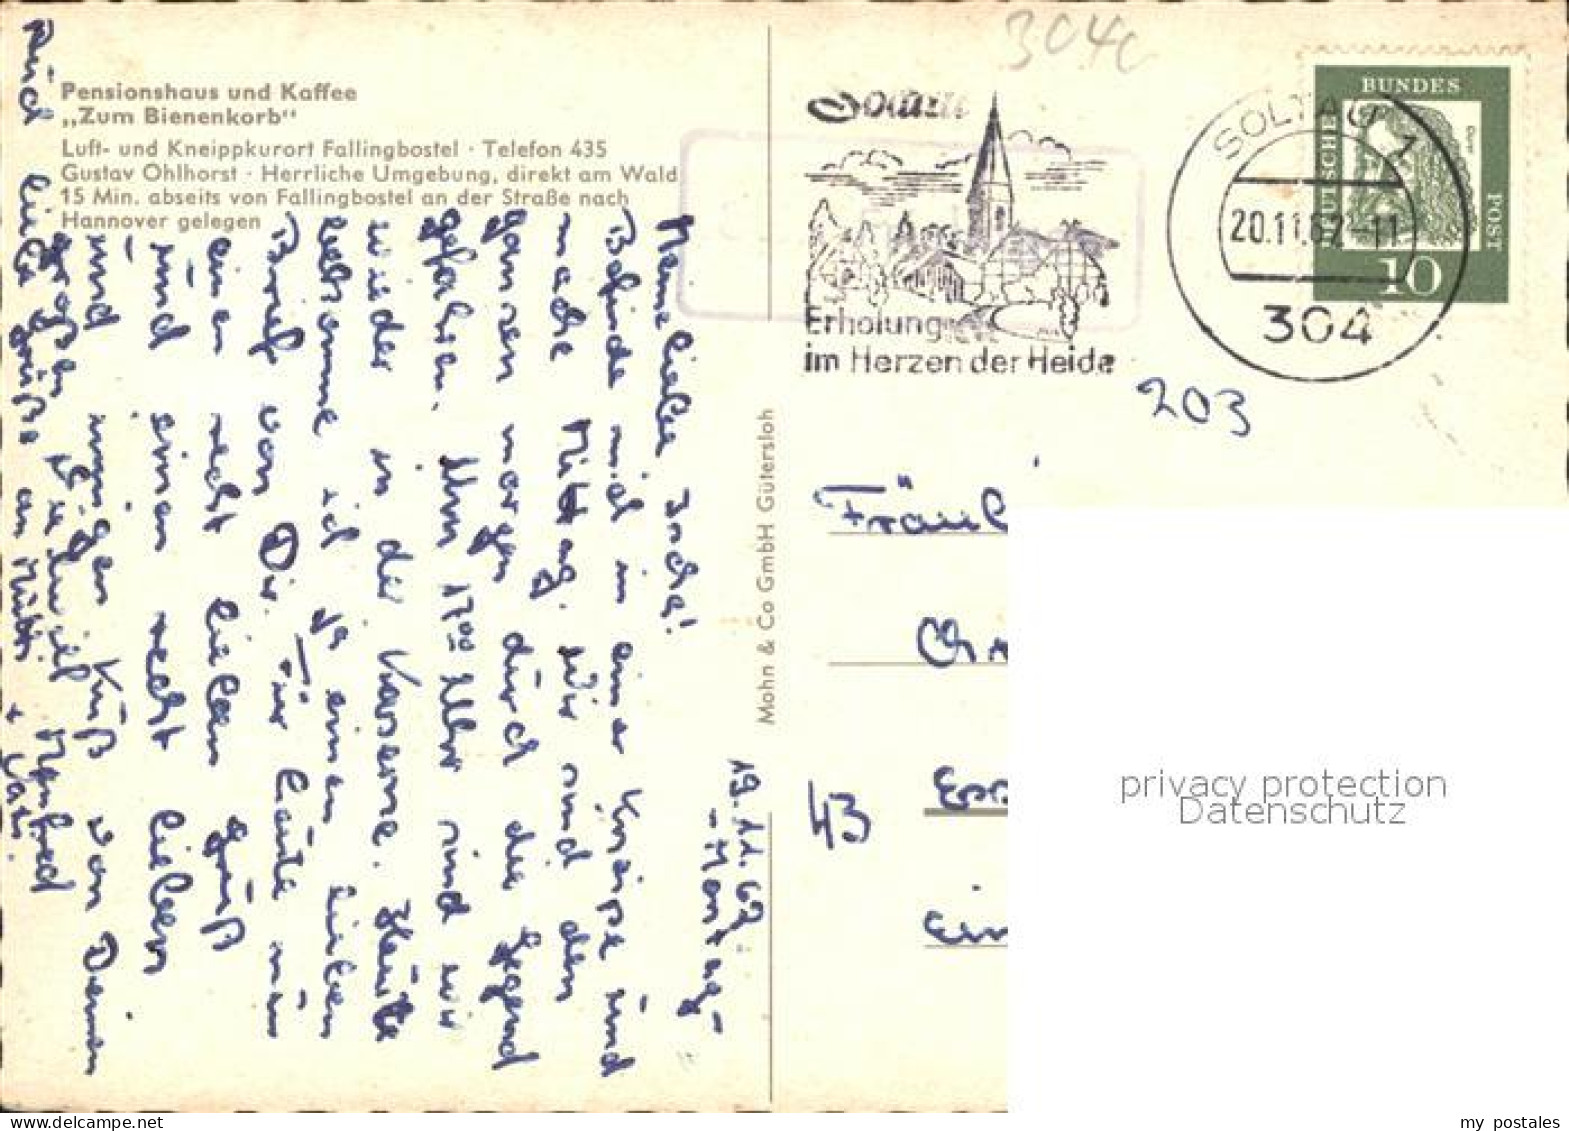 Pensionshaus und Kaffee
„Zum Bienenkorb"
Luft- und Kneippkurort Fallingbostel · Telefon 435
Gustav Ohlhorst · Herrliche Umgebung, direkt am Wald
15 Min. abseits von Fallingbostel an der Straße nach
Hannover gelegen
19.11.62
-Montag-
Meine liebe
Befinde mich in einer Kneipe und
mache Mittag. Wir sind den
ganzen morgen durch die Gegend
gefahren. Um 17ºº Uhr sind wir
wieder in der Kaserne. Heute
bekomme ich ja einen lieben
Brief von Dir. Für heute nun
einen recht lieben Gruß
und einen recht lieben
und innigen Kuß von Deinen
großen Manfred
Auch liebe Grüße an Mutti + Vati.
Mohn & Co GmbH Gütersloh
304c
Soltau
Erholung
im Herzen der Heide
SOLTAU 1
20.11.62-11
304
DEUTSCHE
BUNDES
POST
Dürer
10
203
Fräul
Chr
43
Ess
Ein
privacy protection
Datenschutz
delcampe.net
my_postales